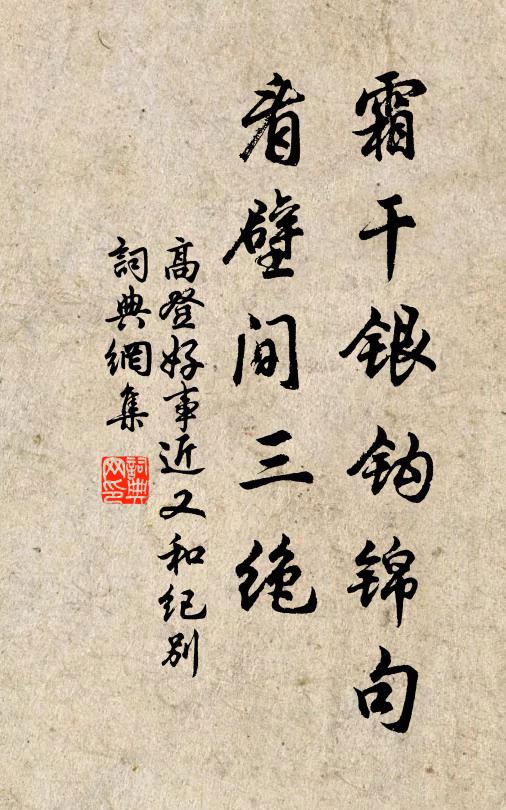 霜干银钩锦句
看壁间三绝
高登好事近又和纪别
詞典網集
詞典网印